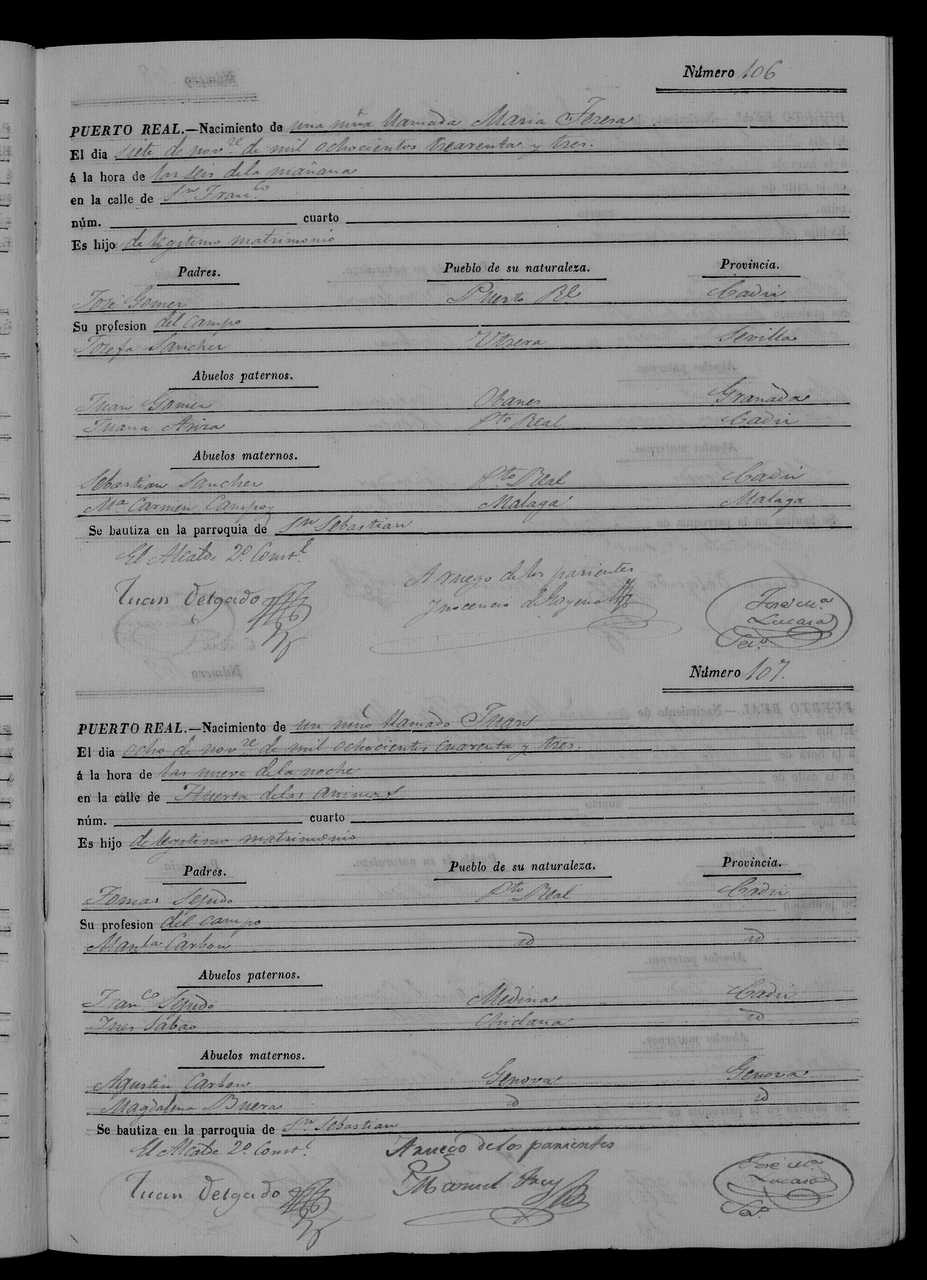 Número 106
PUERTO REAL.—Nacimiento de una niña llamada Maria Teresa
El dia siete de novre de mil ochocientos cuarenta y tres.
á la hora de las seis de la mañana
en la calle de Sn Franco
núm. cuarto
Es hijo de legitimo matrimonio
Padres. Pueblo de su naturaleza. Provincia.
José Gomez Puerto Rl Cadiz
Su profesion del campo
Josefa Sanchez Utrera Sevilla
Abuelos paternos.
Juan Gomez Ohanes Granada
Juana Ariza Pto Real Cadiz
Abuelos maternos.
Sebastian Sanchez Pto Real Cadiz
Ma Carmen Campoy Malaga Malaga
Se bautiza en la parroquia de Sn Sebastian
El Alcalde 2o Constl
A ruego de los parientes
Juan Delgado Inocencio José Ma
Lucaro
Seco
Número 107.
PUERTO REAL.—Nacimiento de un niño llamado Juan
El dia ocho de novre de mil ochocientos cuarenta y tres.
á la hora de las nueve de la noche
en la calle de Huerta de las animas
núm. cuarto
Es hijo de legitimo matrimonio
Padres. Pueblo de su naturaleza. Provincia.
Tomas Sejudo Pto Real Cadiz
Su profesion del campo
Manla Carbon id id
Abuelos paternos.
Franco Sejudo Medina Cadiz
Ines Sabao Chiclana id
Abuelos maternos.
Agustin Carbon Genova Genova
Magdalena id id
Se bautiza en la parroquia de Sn Sebastian
El Alcalde 2o Constl A ruego de los parientes
Juan Delgado Manuel José Ma
Lucaro
Seco